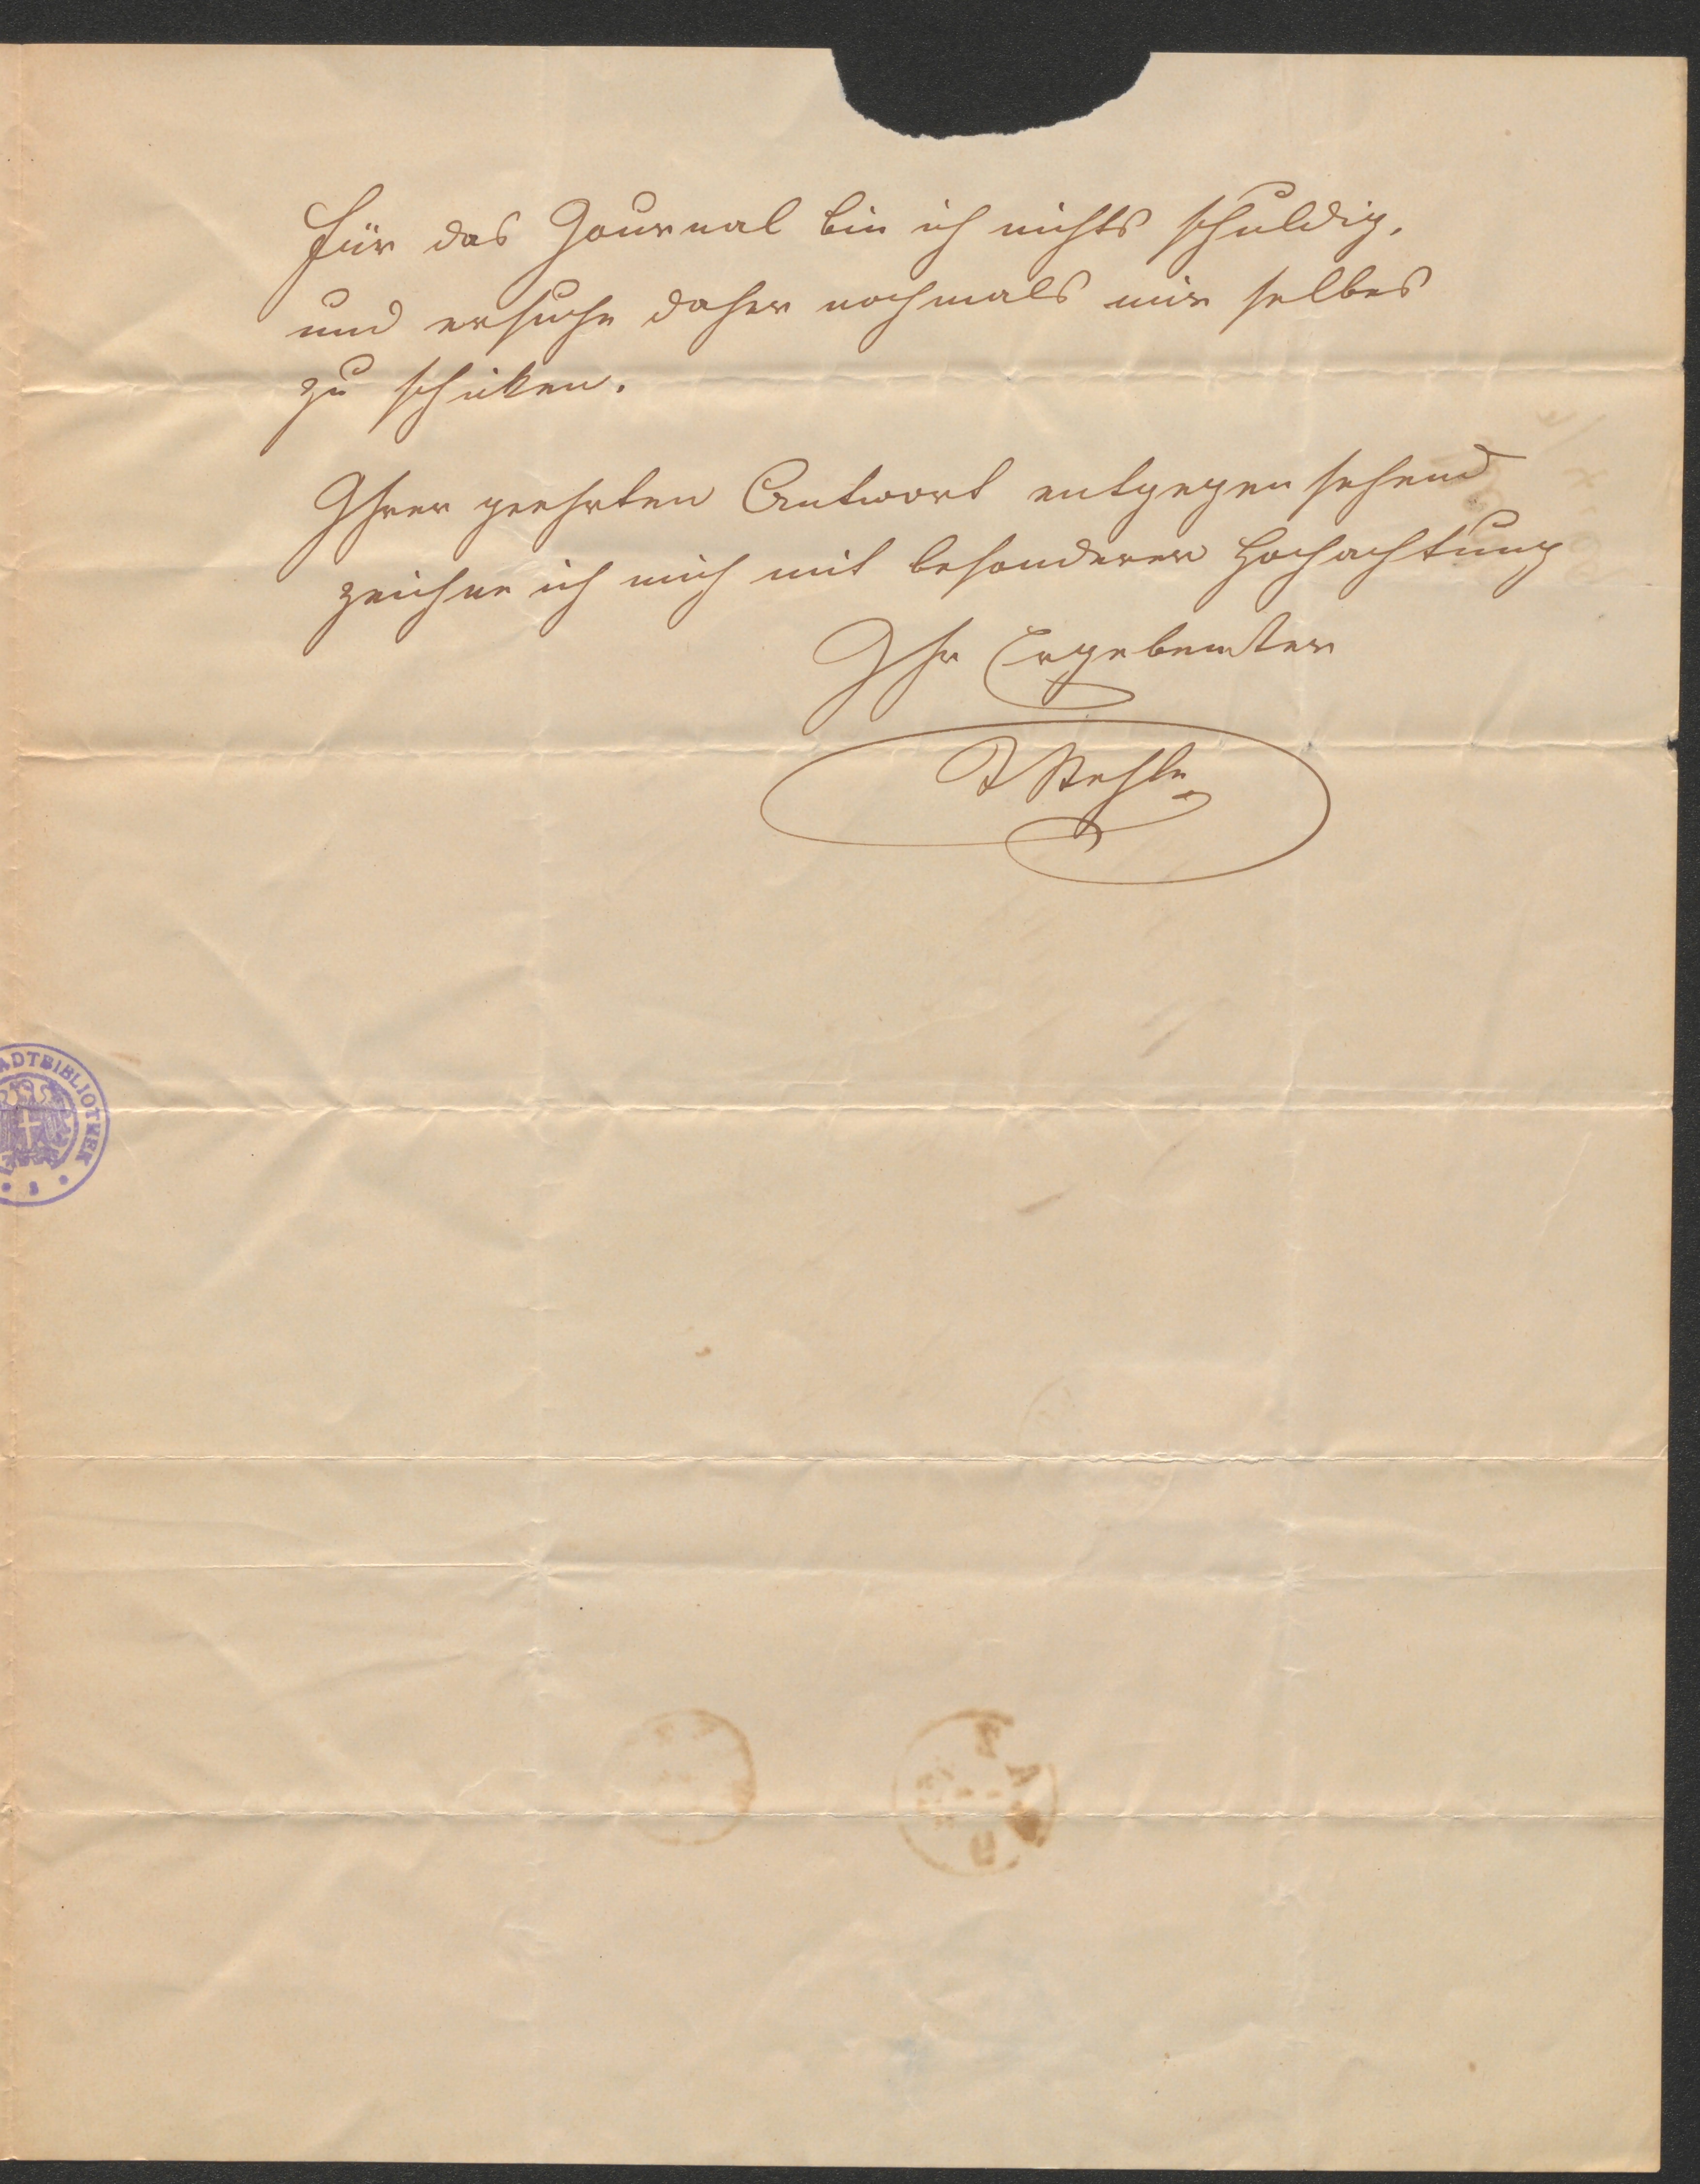 Für das Journal bin ich nichts schuldig,
und ersuche daher nochmals mir selbes
zu schiken.
Ihrer geehrten Antwort entgegen sehend
zeichne ich mich mit besonderer Hochachtung
Ihr Ergebenster
Stehle
ADTBIBLIOTHEK